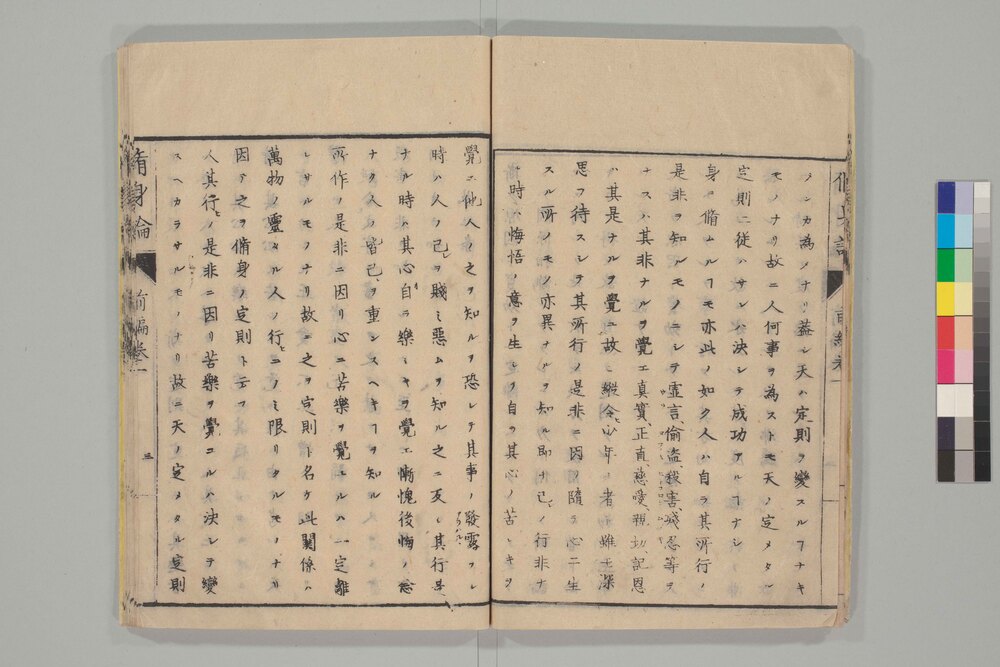 シカ為メナリ蓋シ天ハ定則ヲ變スルヿナキ
モノナリ故ニ人何事ヲ為ストモ天ノ定メタル
定則ニ從ハサレハ決シテ成功アルヿナシ
身ヲ脩ムルヿモ亦此ノ如ク人ハ自ラ其所行ノ
是非ヲ知ルモノニシテ虚言偷盗殺害殘忍等ヲ
ナスハ其非ナルヲ覺エ真實正直慈愛親切記恩
ハ其是ナルヲ覺ユ故ニ縱令ヒ少年ノ者ト雖モ深ク
思フ待スシテ其所行ノ是非ニ因テ隨テ心ニ生
スル所ノモノ亦異ナルヲ知ル即チ己レノ行非ナ
ル時ハ悔悟ノ意ヲ生シテ自ラ其心ノ苦シキヲ
覺エ他人ノ之ヲ知ルヲ恐レテ其事ノ發露スル
時ハ人ノ己ヲ賤ミ惡ムヲ知ル之ニ反シ其行是
ナル時ハ其心自ラ樂ミキヲ覺エ慚愧後悔ノ念
ナク人ノ皆己ヲ重ンスヘキヿヲ知ル
所作ノ是非ニ因リ心ニ苦樂ヲ覺ユルハ一定離
レサルモノナリ故ニ之ヲ定則ト名ケ此關係ハ
萬物ノ靈タル人ノ行ニノミ限リタルモノナリ
因テ之ヲ脩身ノ定則ト云フ
人其行ノ是非ニ因リ苦樂ヲ覺ユルハ決シテ變
スヘカラサルモノナリ故ニ天ノ定メタル定則
脩身論 前編卷一 三